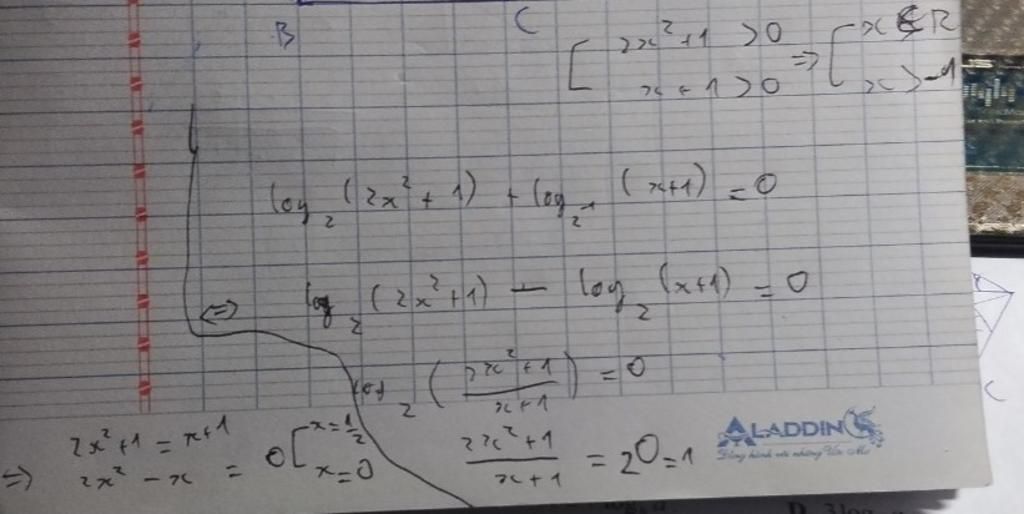 B C
[ 2x² + 1 > 0 ⇒ [ x ∈ R
x + 1 > 0 x > -1
log₂ (2x² + 1) + log₂⁻¹ (x+1) = 0
⇔ log₂ (2x²+1) − log₂ (x+1) = 0
log₂ ( (2x²+1) / (x+1) ) = 0
2x²+1 = x+1
⇒ 2x² − x = 0 [ x = 1/2
x = 0
(2x²+1) / (x+1) = 2⁰ = 1
ALADDIN
C